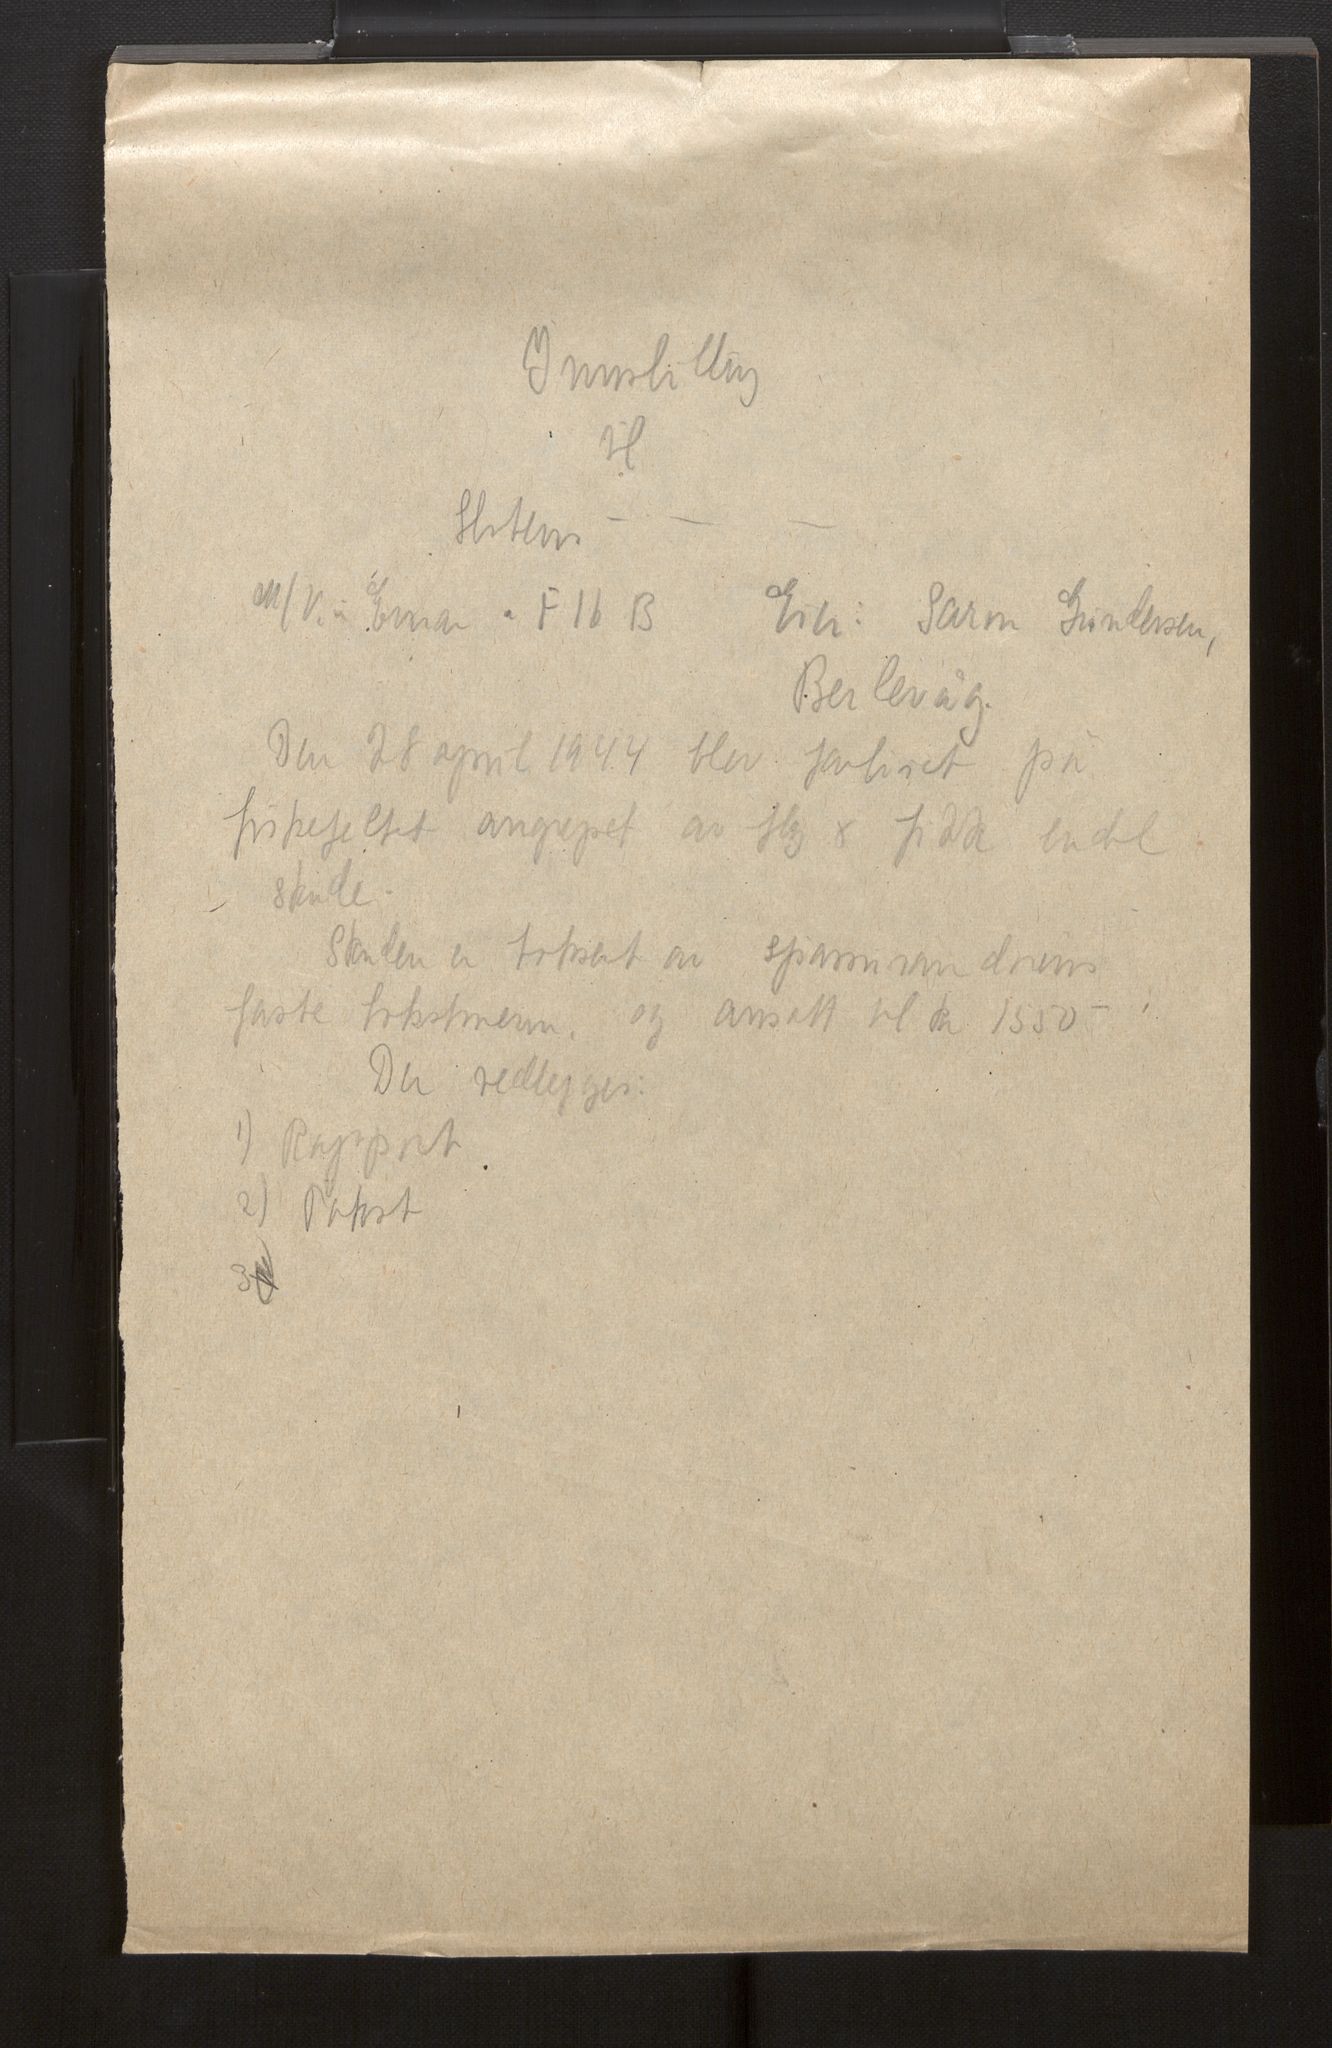 Innstilling
til
Statens - - -
M/K. "Erna" F 16 B Eier: Saron Gundersen,
Berlevåg.
Den 28 april 1944 blev fartøiet på
fiskefeltet angrepet av fly & fikk endel
skade.
Skaden er taksert av
faste takstmenn, og ansatt til kr 1550-
Der vedlegges:
1) Rapport
2) Takst
3